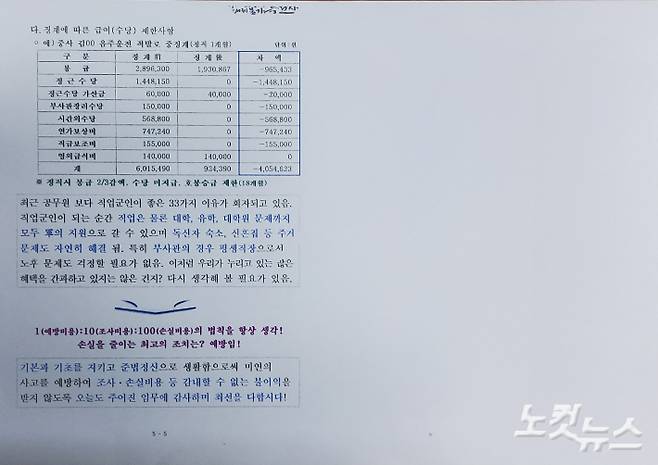 다. 징계에 따른 급여(수당) 제한사항
○ 예) 중사 김00 음주운전 적발로 중징계(정직 1개월) 단위 : 원
구 분 징계前 징계後 차 액
봉 급 2,896,300 1,930,867 -965,433
정 근 수 당 1,448,150 0 -1,448,150
정근수당 가산금 60,000 40,000 -20,000
부사관장려수당 150,000 0 -150,000
시간외수당 568,800 0 -568,800
연가보상비 747,240 0 -747,240
직급보조비 155,000 0 -155,000
영외급식비 140,000 140,000 0
계 6,015,490 934,390 -4,054,623
※ 정직시 봉급 2/3감액, 수당 미지급, 호봉승급 제한(18개월)
최근 공무원 보다 직업군인이 좋은 33가지 이유가 회자되고 있음.
직업군인이 되는 순간 직업은 물론 대학, 유학, 대학원 문제까지
모두 軍의 지원으로 갈 수 있으며 독신자 숙소, 신혼집 등 주거
문제도 자연히 해결 됨. 특히 부사관의 경우 평생직장으로서
노후 문제도 걱정할 필요가 없음. 이처럼 우리가 누리고 있는 많은
혜택을 간과하고 있지는 않은 건지? 다시 생각해 볼 필요가 있음.
1(예방비용):10(조사비용):100(손실비용)의 법칙을 항상 생각!
손실을 줄이는 최고의 조치는? 예방임!
기본과 기초를 지키고 준법정신으로 생활함으로써 미연의
사고를 예방하여 조사·손실비용 등 감내할 수 없는 불이익을
받지 않도록 오늘도 주어진 임무에 감사하며 최선을 다합시다!
5 - 5
노컷뉴스